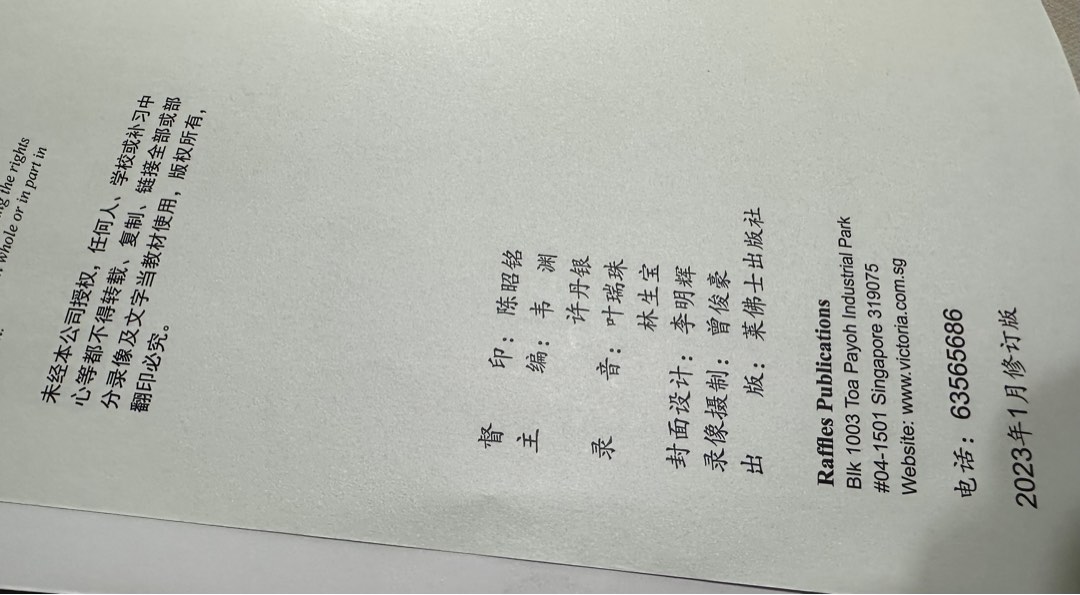 ng the rights
whole or in part in
未经本公司授权，任何人、学校或补习中
心等都不得转载、复制、链接全部或部
分录像及文字当教材使用，版权所有，
翻印必究。
督 印：陈昭铭
主 编：韦 渊
许丹银
录 音：叶瑞珠
林生宝
封面设计：李明辉
录像摄制：曾俊豪
出 版：莱佛士出版社
Raffles Publications
Blk 1003 Toa Payoh Industrial Park
#04-1501 Singapore 319075
Website: www.victoria.com.sg
电话：63565686
2023年1月修订版